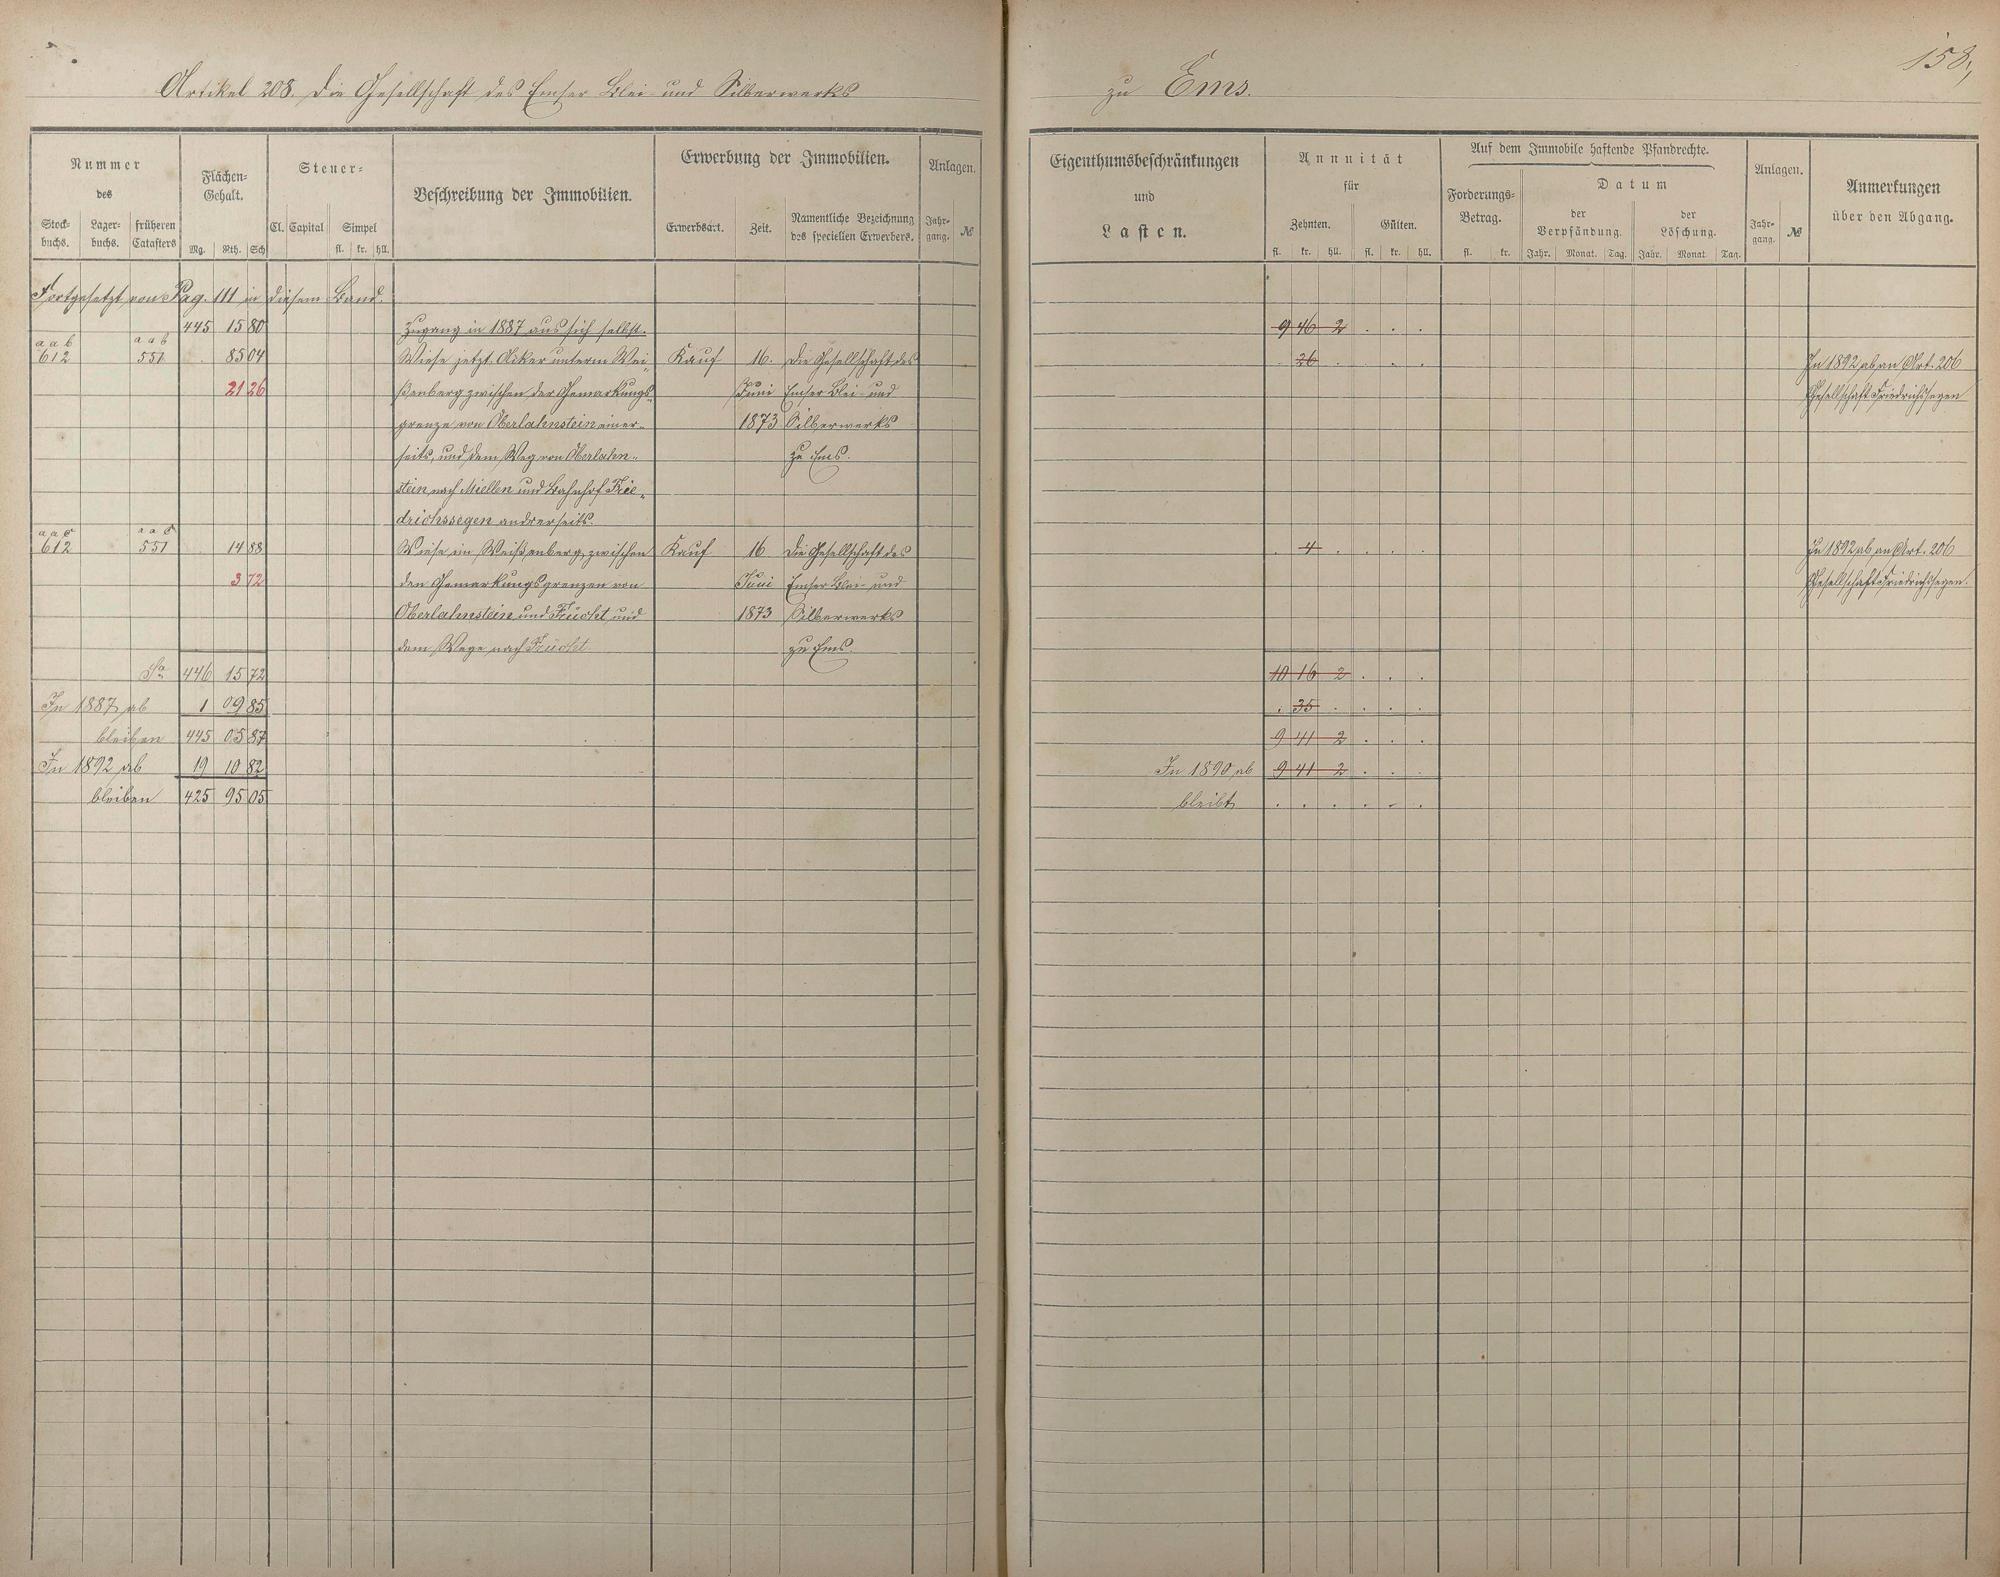 158,
Artikel 208. Die Gesellschaft des Emser Blei- und Silberwerks zu Ems.
Nummer
des
Stock-
buchs.
Lager-
buchs.
früheren
Catasters
Flächen-
Gehalt.
Mg. Rth. Sch
Steuer-
Cl. Capital Simpel
fl. kr. hll.
Beschreibung der Immobilien.
Erwerbung der Immobilien.
Erwerbsart. Zeit. Namentliche Bezeichnung
des speciellen Erwerbers.
Anlagen.
Jahr-
gang. №
Eigenthumsbeschränkungen
und
Lasten.
Annuität
für
Zehnten. Gülten.
fl. kr. hll. fl. kr. hll.
Auf dem Immobile haftende Pfandrechte.
Forderungs-
Betrag.
fl. kr.
Datum
der
Verpfändung.
der
Löschung.
Jahr. Monat. Tag. Jahr. Monat. Tag.
Anlagen.
Jahr-
gang. №
Anmerkungen
über den Abgang.
Fortgesetzt von Pag. 111 in diesem Band.
445 15 80 Zugang in 1887 aus sich selbst. 9 46 2 . . .
a a b a a b
612 551 . 85 04 Wiese jetzt Acker unterm Wei- Kauf 16. Die Gesellschaft des . 26 . . . . In 1892 ab an Art. 206
21 26 ßenberg zwischen der Gemarkungs- Juni Emser Blei- und Gesellschaft Friedrichssegen
grenze von Oberlahnstein einer- 1873 Silberwerks
seits, und dem Weg von Oberlahn- zu Ems.
stein nach Miellen und Bahnhof Frie-
drichssegen andrerseits.
a a c a a c
612 551 14 88 Wiese im Weißenberg, zwischen Kauf 16 Die Gesellschaft des . 4 . . . . In 1892 ab an Art. 206
3 72 den Gemarkungsgrenzen von Juni Emser Blei- und Gesellschaft Friedrichssegen.
Oberlahnstein und Frücht und 1873 Silberwerks
dem Wege nach Frücht zu Ems.
Sa 446 15 72 10 16 2 . . .
In 1887 ab 1 09 85 . 35 . . . .
bleiben 445 05 87 9 41 2 . . .
In 1892 ab 19 10 82 In 1890 ab 9 41 2 . . .
bleiben 425 95 05 bleibt . . . . . .